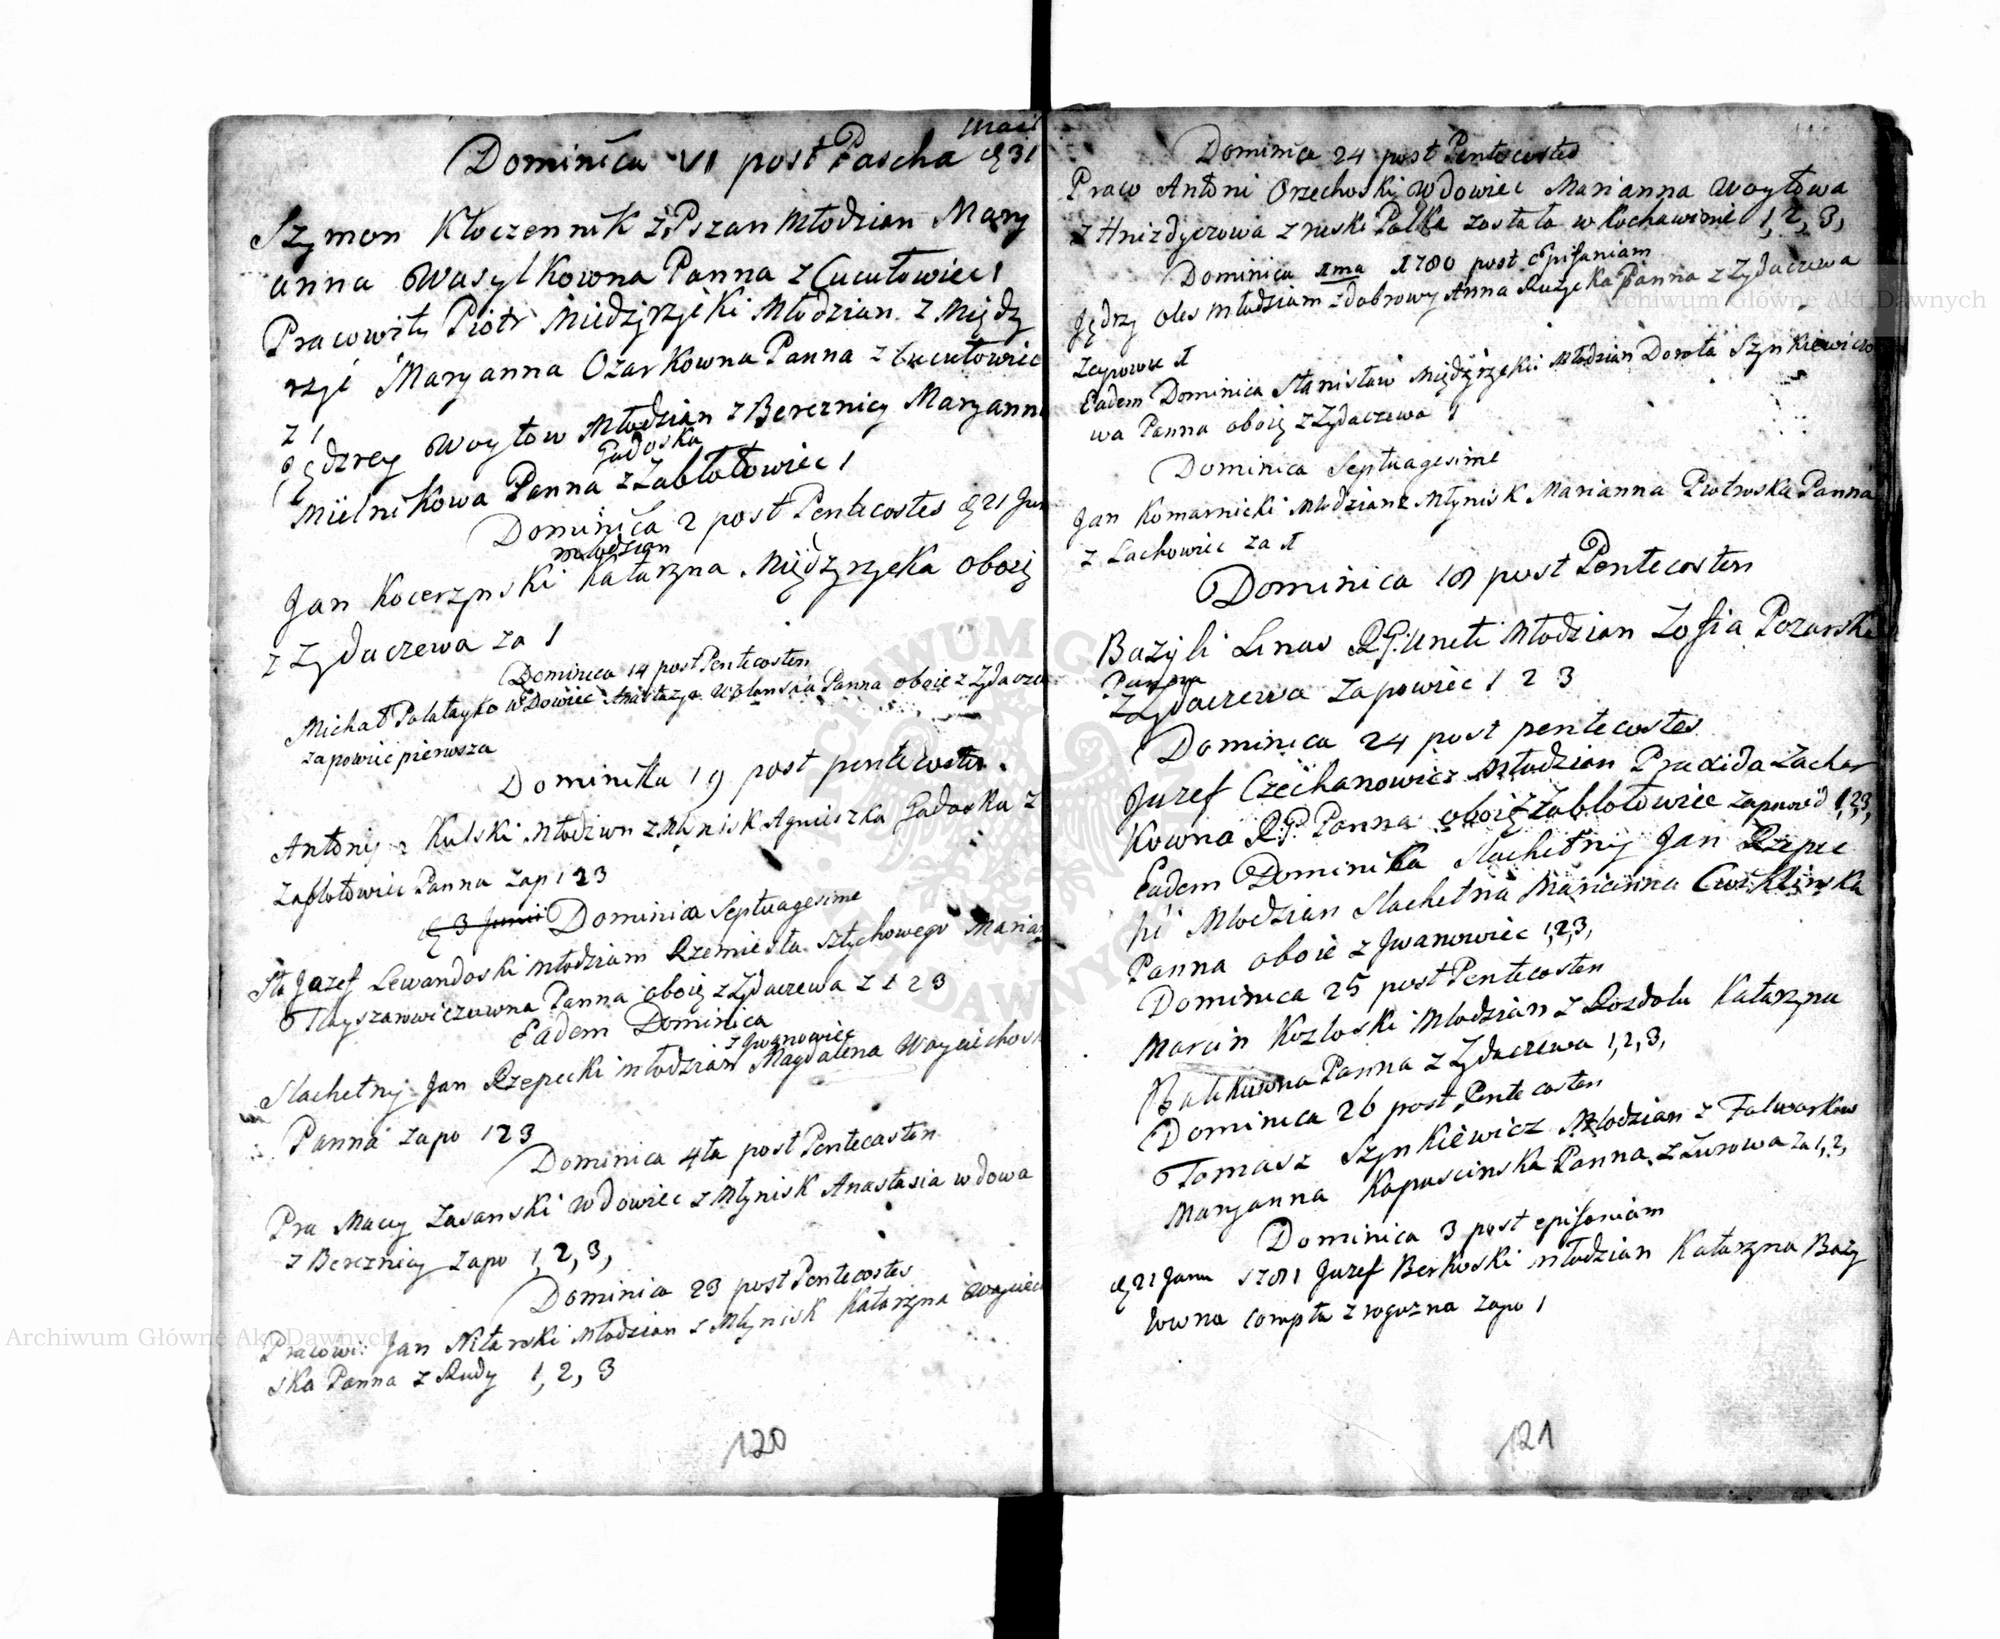 Maii
Dominica VI post Pascha 31
Szymon Kłoczennik z Pszan Młodzian Mary
anna Wasylkowna Panna z Cucułowiec 1
Pracowity Piotr Miedzyrzycki Młodzian z Między
rzyc Maryanna Ozarkowna Panna z Cucułowiec
z 1
Jędrzey Woytow Młodzian z Bereznicy Maryanna
Gadoska
Mielnikowa Panna z Zabłotowiec 1
Dominica 2 post Pentecostes 21 Jun
młodzian
Jan Kocerzynski Katarzyna Międzyrzycka oboię
z Zydaczewa za 1
Dominica 14 post Pentecosten
Michał Pałatayko wDowiec Anastazya Wolanska Panna oboie z Zydacze
zapowiec pierwsza
Dominika 19 post pentecostes
Antonij Kulski Młodzian z Młynisk Agnieszka Gadoska z
Zabłotowiec Panna zap 1 2 3
3 Junii Dominica Septuagesime
Sła Jozef Lewandoski młodziam Rzemiesła szychowego Marian
Tayszarowiczowna Panna oboię z Zydaczewa z 1 2 3
Eadem Dominica
z Jwanowiec
Slachetny Jan Rzepecki młodzian Magdalena Woyciechosk
Panna zapo 1 2 3
Dominica 4ta post Pentecosten
Pra Maciy Zasanski Wdowiec z Młynisk Anastasia wdowa
z Bereznicy zapo 1, 2, 3,
Dominica 23 post Pentecostes
Pracowi: Jan Nitarski Młodzian z Młynisk Katarzyna Woyciecho
ska Panna z Rudy 1, 2, 3
120
Dominica 24 post Pentecostes
Praco Antoni Orzechoski Wdowiec Marianna Woytowa
z Hnizdyczowa z ruski Pałka została w Kochawinie 1, 2, 3,
Dominica 1ma 1780 post Epifaniam
Jędrzy Oles młodziam z dabrowy Anna Ruzycka Panna z Zydaczewa
Zapowie 1
Eadem Dominica Stanisław Międzyrzycki Młodzian Dorota Szynkiewiczo
wa Panna oboię z Zydaczewa 1
Dominica Septuagesime
Jan Komarnicki Młodzian z Młynisk Marianna Piotroska Panna
z Lachowiec za 1
Dominica 18 post Pentecosten
Bazyli Linas R.G. Uneti Młodzian Zofia Pozarska
Panna
z Zydaczewa zapowiec 1 2 3
Dominica 24 post pentecostes
Juzef Czechanowicz Młodzian Praxida Zachar
kowna R.G. Panna oboię z Zabłotowiec zapowid 1,2,3,
Eadem Dominika Slachetnij Jan Rzepec
ki Młodzian Slachetna Marianna Cwiklinska
Panna oboie z Jwanowiec 1,2,3,
Dominica 25 post Pentecosten
Marcin Kozłoski Młodzian z Rozdołu Katarzyna
Bulikowna Panna z Zydaczewa 1,2,3,
Dominica 26 post Pentecosten
Tomasz Szynkiewicz Młodzian z Folwarkow
Maryanna Kapuscinska Panna z Zurowa Za 1, 2,
Dominica 3 post epifaniam
21 Janu 1781 Juzef Berkoski młodzian Katarzyna Bazy
lowna compta z rogozna zapo 1
121
Archiwum Główne Akt Dawnych
Archiwum Główne Akt Dawnych
ARCHIWUM GŁÓWNE AKT DAWNYCH